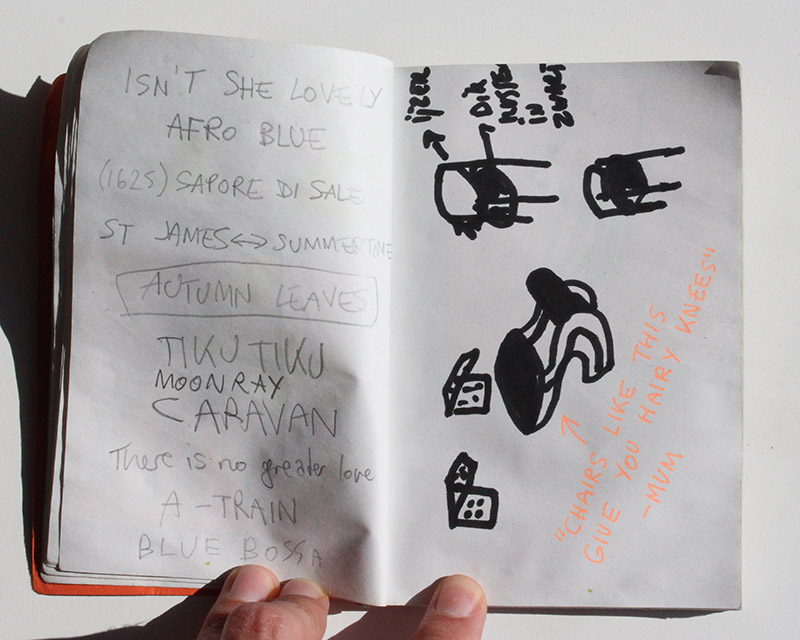 ISN'T SHE LOVELY
AFRO BLUE
(1625) SAPORE DI SALE
ST JAMES ↔ SUMMERTIME
AUTUMN LEAVES
TIKU TIKU
MOONRAY
CARAVAN
There is no greater love
A-TRAIN
BLUE BOSSA
ijzer
DIK
IN
ZWART
"CHAIRS LIKE THIS
GIVE YOU HAIRY KNEES"
-MUM